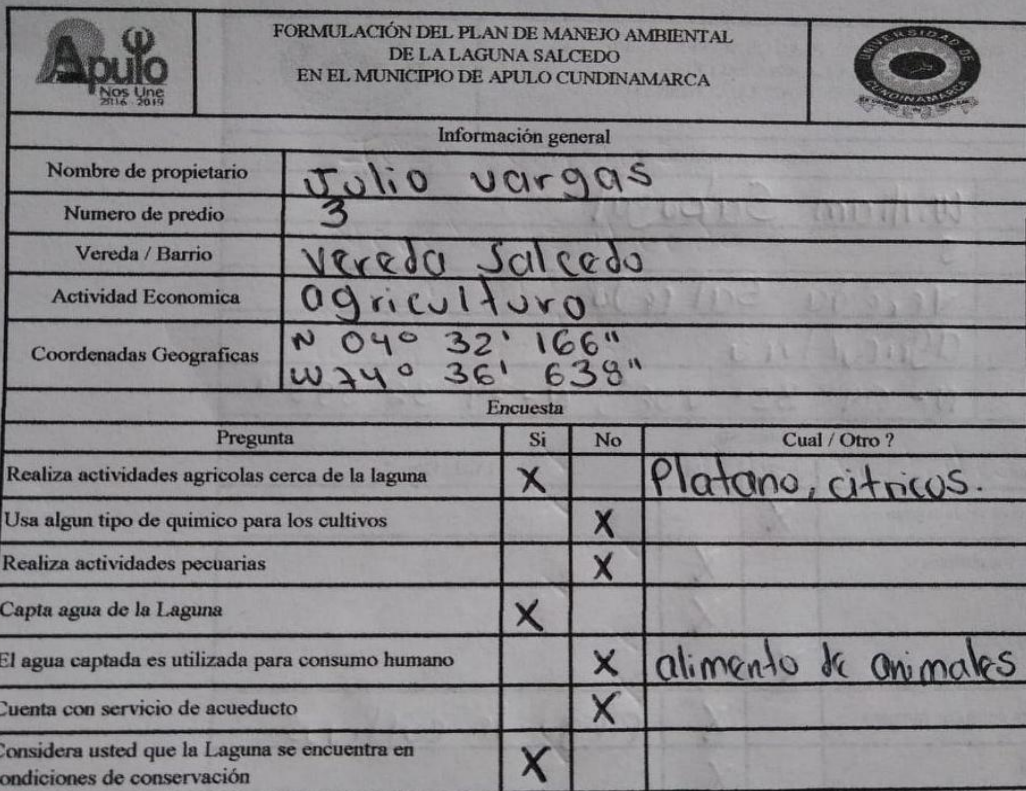 Apulo
Nos Une
2016 - 2019
FORMULACIÓN DEL PLAN DE MANEJO AMBIENTAL
DE LA LAGUNA SALCEDO
EN EL MUNICIPIO DE APULO CUNDINAMARCA
UNIVERSIDAD DE
CUNDINAMARCA
Información general
Nombre de propietario Julio vargas
Numero de predio 3
Vereda / Barrio Vereda Salcedo
Actividad Economica agricultura
Coordenadas Geograficas N 04° 32' 166"
W 74° 36' 638"
Encuesta
Pregunta Si No Cual / Otro ?
Realiza actividades agricolas cerca de la laguna X Platano, citricos.
Usa algun tipo de quimico para los cultivos X
Realiza actividades pecuarias X
Capta agua de la Laguna X
El agua captada es utilizada para consumo humano X alimento de animales
Cuenta con servicio de acueducto X
Considera usted que la Laguna se encuentra en
condiciones de conservación X